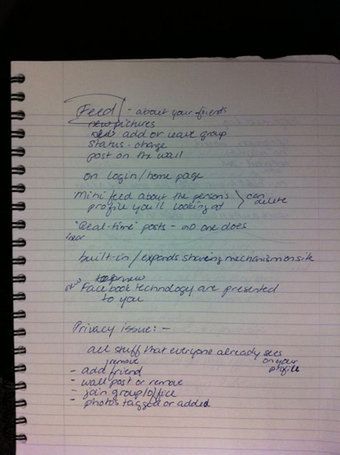 Feed - about your friends
new pictures
add or leave group
status - change
post on the wall
on login/home page
Mini feed about the person's \ can
profile you'll looking at / delete
"Real-time" posts - no one does
built-in / expands sharing mechanism on site
new
Facebook technology are presented
to you
Privacy issue: -
all stuff that everyone already sees
/remove on your
- add friend profile
- wall post or remove
- join group/office
- photos tagged or added